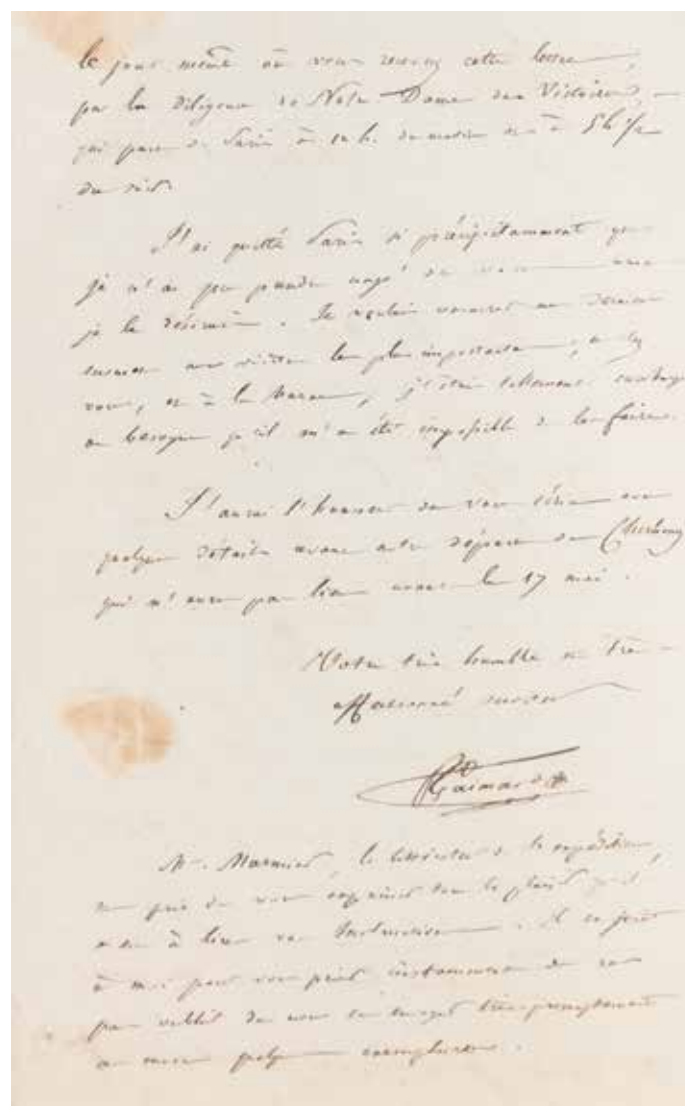 le jour même où vous recevrez cette lettre,
par la diligence de Notre Dame des Victoires,
qui part de Paris à 10 h. du matin et à 5 h 1/2
du soir.
J'ai quitté Paris si précipitamment que
je n'ai pu prendre congé de vous comme
je le désirais. Je voulais
mes visites les plus importantes,
vous, et à la j'étais tellement surchargé
de besogne qu'il m'a été impossible de les faire.
J'aurai l'honneur de vous écrire avec
quelques détails avant notre départ de Cherbourg
qui n'aura pas lieu avant le 17 mai.
Votre très humble et très
affectionné serviteur
P. Gaimard
Mr. Marmier, le littérateur de l'expédition,
me prie de vous exprimer tout le plaisir qu'il
a eu à lire vos Instructions. Il se joint
à moi pour vous prier instamment de ne
pas oublier de nous en envoyer très promptement
au moins quelques exemplaires.